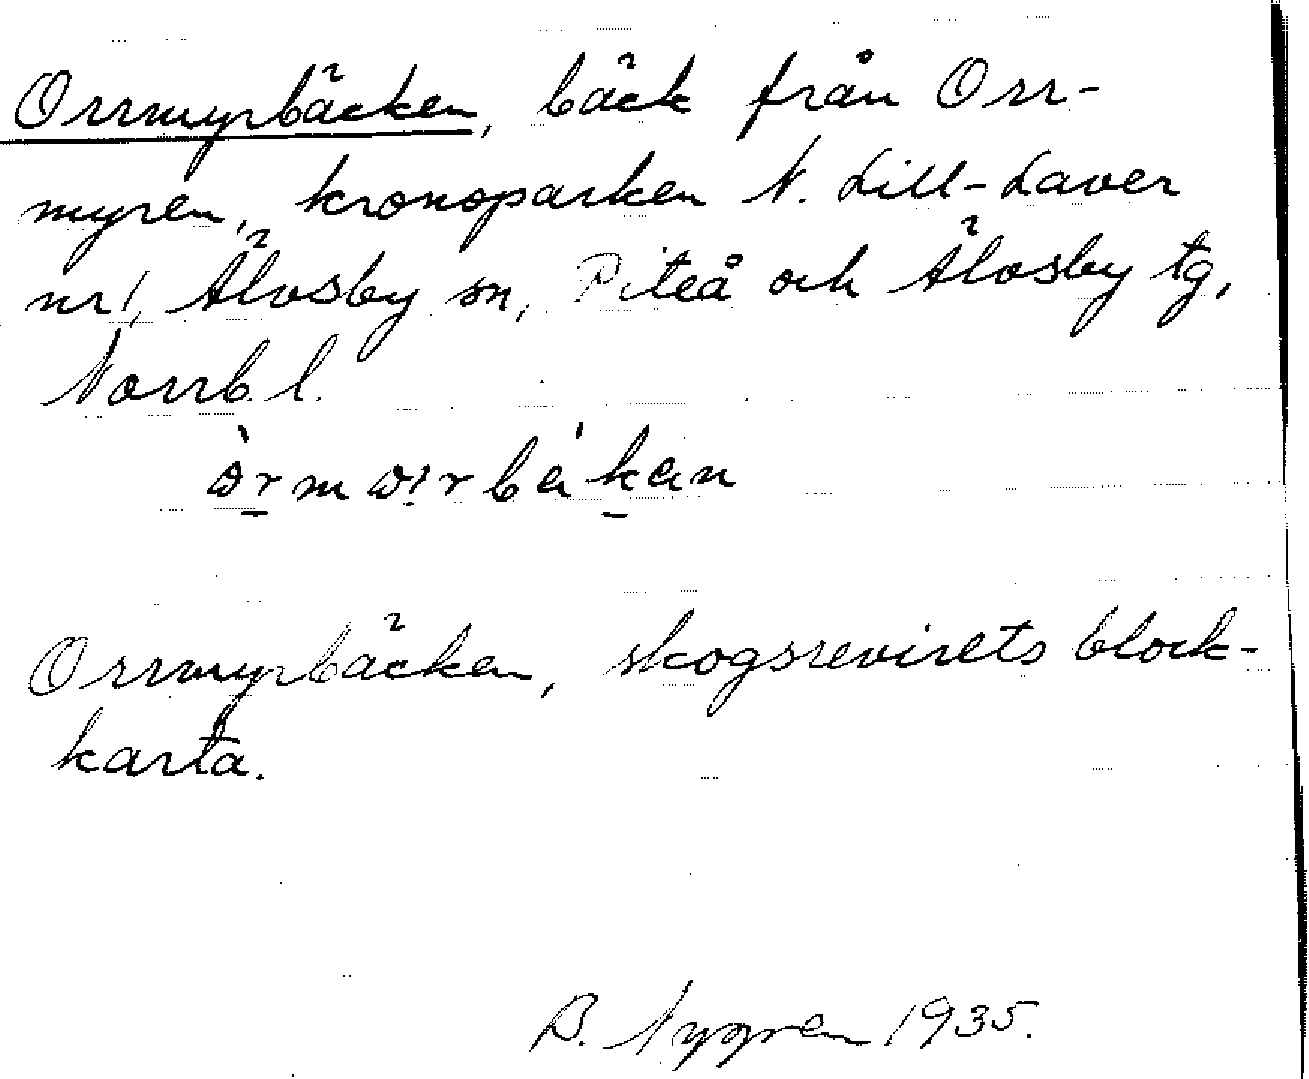 Orrmyrbäcken, bäck från Orr-
myren, kronoparken N. Lill-Laver
nr 1, Älvsby sn, Piteå och Älvsby tg,
Norrb. l.
Orrmyrbäcken, skogsrevirets block-
karta.
B. Nygren 1935.